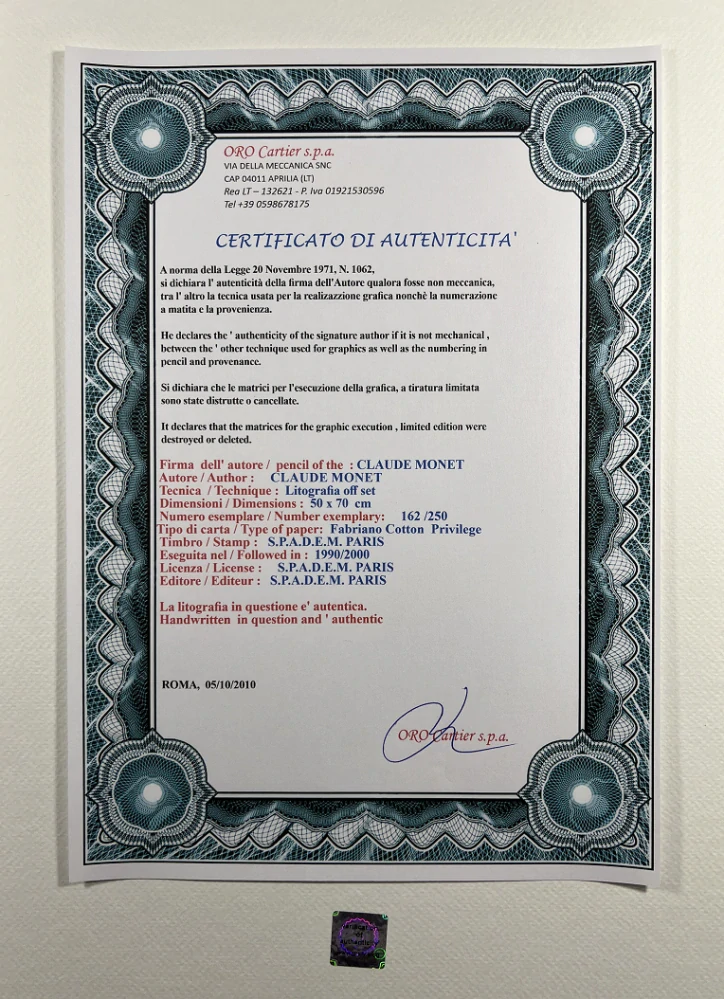 ORO Cartier s.p.a.
VIA DELLA MECCANICA SNC
CAP 04011 APRILIA (LT)
Rea LT – 132621 - P. Iva 01921530596
Tel +39 0598678175
CERTIFICATO DI AUTENTICITA'
A norma della Legge 20 Novembre 1971, N. 1062,
si dichiara l' autenticità della firma dell'Autore qualora fosse non meccanica,
tra l' altro la tecnica usata per la realizazzione grafica nonchè la numerazione
a matita e la provenienza.
He declares the ' authenticity of the signature author if it is not mechanical ,
between the ' other technique used for graphics as well as the numbering in
pencil and provenance.
Si dichiara che le matrici per l'esecuzione della grafica, a tiratura limitata
sono state distrutte o cancellate.
It declares that the matrices for the graphic execution , limited edition were
destroyed or deleted.
Firma dell' autore / pencil of the : CLAUDE MONET
Autore / Author : CLAUDE MONET
Tecnica / Technique : Litografia off set
Dimensioni / Dimensions : 50 x 70 cm
Numero esemplare / Number exemplary: 162 /250
Tipo di carta / Type of paper: Fabriano Cotton Privilege
Timbro / Stamp : S.P.A.D.E.M. PARIS
Eseguita nel / Followed in : 1990/2000
Licenza / License : S.P.A.D.E.M. PARIS
Editore / Editeur : S.P.A.D.E.M. PARIS
La litografia in questione e' autentica.
Handwritten in question and ' authentic
ROMA, 05/10/2010
ORO Cartier s.p.a.